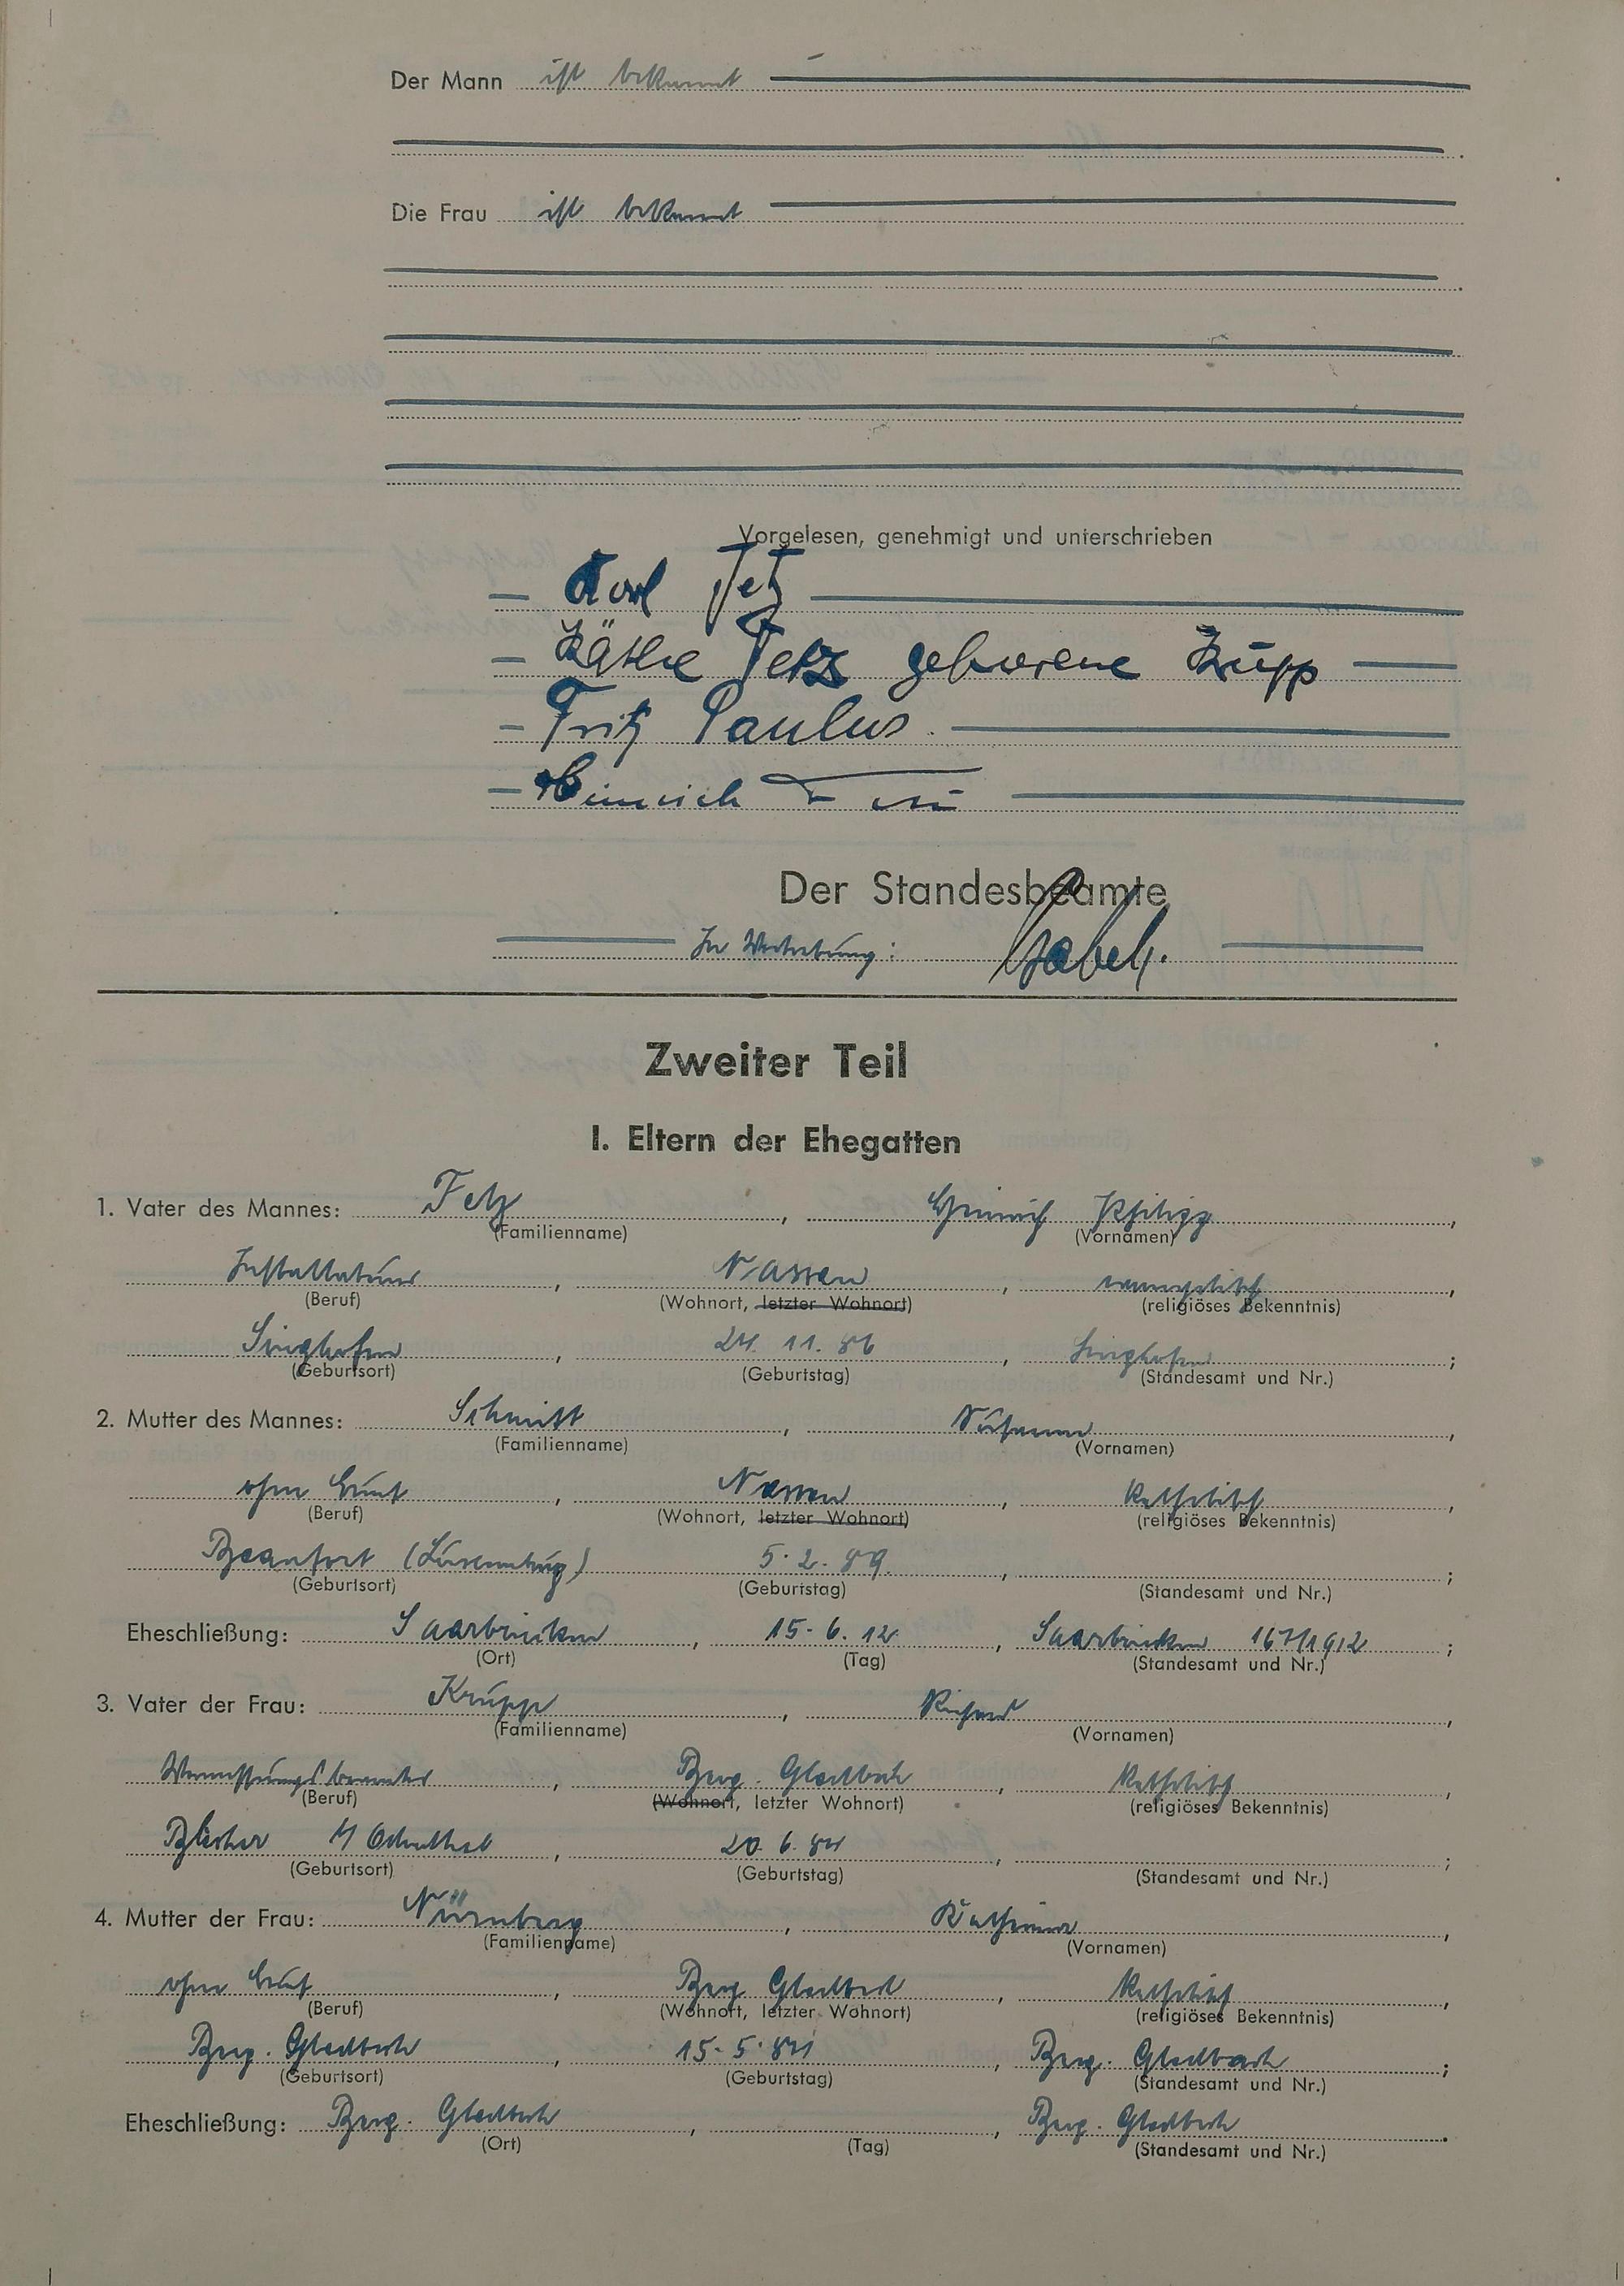 Der Mann ist bekannt
Die Frau ist bekannt
Vorgelesen, genehmigt und unterschrieben
Karl Fetz
Käthe Fetz geborene Krupp
Fritz Paulus
Heinrich
Der Standesbeamte
In Vertretung:
Zweiter Teil
I. Eltern der Ehegatten
1. Vater des Mannes: Fetz, Heinrich Philipp,
(Familienname) (Vornamen)
Installateur, Nassau, evangelisch,
(Beruf) (Wohnort, letzter Wohnort) (religiöses Bekenntnis)
Singhofen, 24. 11. 86, Singhofen;
(Geburtsort) (Geburtstag) (Standesamt und Nr.)
2. Mutter des Mannes: Schmitt, Susanna,
(Familienname) (Vornamen)
ohne Beruf, Nassau, katholisch,
(Beruf) (Wohnort, letzter Wohnort) (religiöses Bekenntnis)
Beaufort (Luxemburg) 5. 2. 89., ;
(Geburtsort) (Geburtstag) (Standesamt und Nr.)
Eheschließung: Saarbrücken, 15. 6. 12., Saarbrücken 167/1912;
(Ort) (Tag) (Standesamt und Nr.)
3. Vater der Frau: Krupp, Richard,
(Familienname) (Vornamen)
Vermessungsbeamter, Berg. Gladbach, katholisch,
(Beruf) (Wohnort, letzter Wohnort) (religiöses Bekenntnis)
Odenthal, 20. 6. 84, ;
(Geburtsort) (Geburtstag) (Standesamt und Nr.)
4. Mutter der Frau: Nürnberg, Katharina,
(Familienname) (Vornamen)
ohne Beruf, Berg. Gladbach, katholisch,
(Beruf) (Wohnort, letzter Wohnort) (religiöses Bekenntnis)
Berg. Gladbach, 15. 5. 84, Berg. Gladbach;
(Geburtsort) (Geburtstag) (Standesamt und Nr.)
Eheschließung: Berg. Gladbach, , Berg. Gladbach.
(Ort) (Tag) (Standesamt und Nr.)